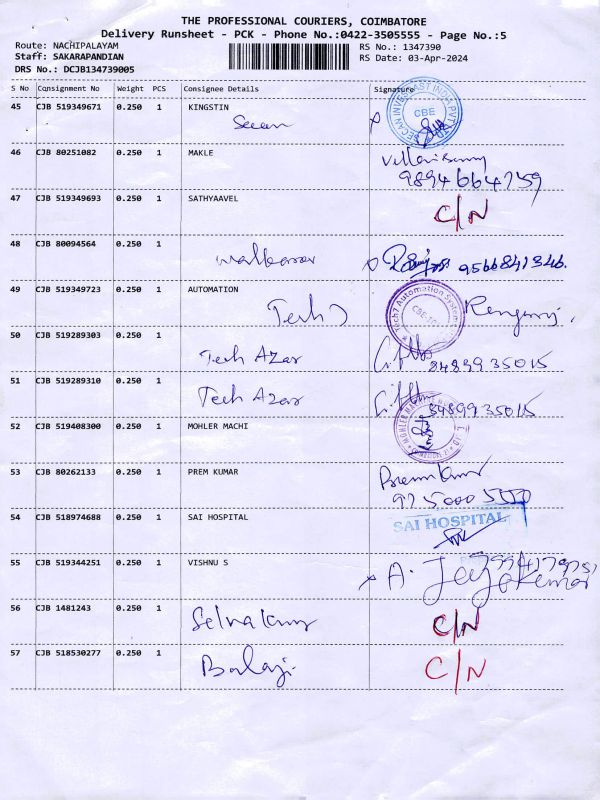 THE PROFESSIONAL COURIERS, COIMBATORE
Delivery Runsheet - PCK - Phone No.:0422-3505555 - Page No.:5
Route: NACHIPALAYAM RS No.: 1347390
Staff: SAKARAPANDIAN RS Date: 03-Apr-2024
DRS No.: DCJB134739005
S No Consignment No Weight PCS Consignee Details Signature
45 CJB 519349671 0.250 1 KINGSTIN
SECAN INVEST CAST INDIA PVT LTD CBE
Secan
46 CJB 80251082 0.250 1 MAKLE
9894664759
47 CJB 519349693 0.250 1 SATHYAAVEL
C/N
48 CJB 80094564 0.250 1
9566841346.
49 CJB 519349723 0.250 1 AUTOMATION
Tech7 Automation System
Tech 7
50 CJB 519289303 0.250 1
Tech Azar 8489935015
51 CJB 519289310 0.250 1
Tech Azar 8489935015
52 CJB 519408300 0.250 1 MOHLER MACHI
MOHLER
53 CJB 80262133 0.250 1 PREM KUMAR
Prem Kumar
54 CJB 518974688 0.250 1 SAI HOSPITAL
SAI HOSPITAL
55 CJB 519344251 0.250 1 VISHNU S
A. Jeyakumar
56 CJB 1481243 0.250 1
Selvakumar C/N
57 CJB 518530277 0.250 1
Balaji. C/N